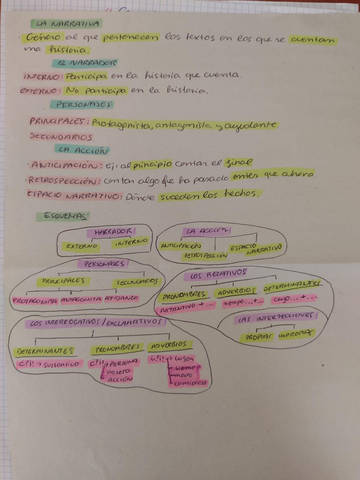 LA NARRATIVA
Género al que pertenecen los textos en los que se cuentan
una historia.
EL NARRADOR
INTERNO: Participa en la historia que cuenta.
EXTERNO: No participa en la historia.
PERSONAJES
PRINCIPALES: Protagonista, antagonista y ayudante
SECUNDARIOS
LA ACCIÓN
· ANTICIPACIÓN: Ej: al principio contar el final
· RETROSPECCIÓN: contar algo que ha pasado antes que ahora
· ESPACIO NARRATIVO: Dónde suceden los hechos.
ESQUEMAS
NARRADOR
EXTERNO INTERNO
LA ACCIÓN
ANTICIPACIÓN RETROSPECCIÓN ESPACIO NARRATIVO
PERSONAJES
PRINCIPALES SECUNDARIOS
PROTAGONISTA ANTAGONISTA AYUDANTE
LOS RELATIVOS
PRONOMBRES ADVERBIOS DETERMINANTES
+... cuyo ...+...
LOS INTERROGATIVOS/EXCLAMATIVOS
DETERMINANTES PRONOMBRES ADVERBIOS
¿?¡! → SUSTANTIVO
¿?¡! → PERSONA
OBJETO
ACCIÓN
¿?¡! → LUGAR
tiempo
modo
cantidad
LAS INTERJECCIONES
PROPIAS IMPROPIAS